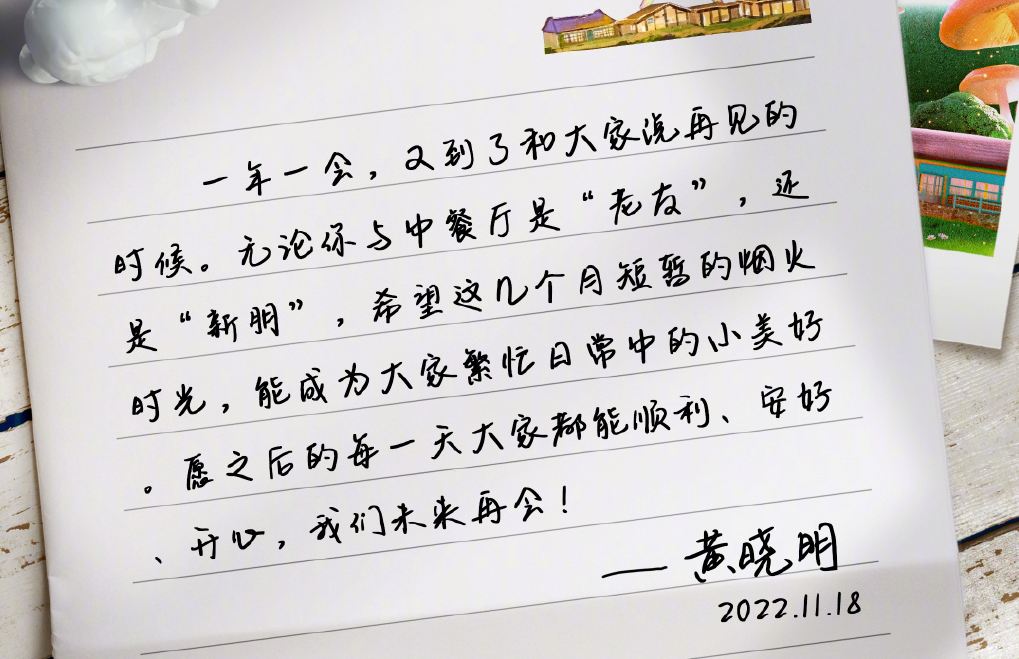 一年一会，又到了和大家说再见的
时候。无论你与中餐厅是“老友”，还
是“新朋”，希望这几个月短暂的烟火
时光，能成为大家繁忙日常中的小美好
。愿之后的每一天大家都能顺利、安好
、开心，我们未来再会！
——黄晓明
2022.11.18